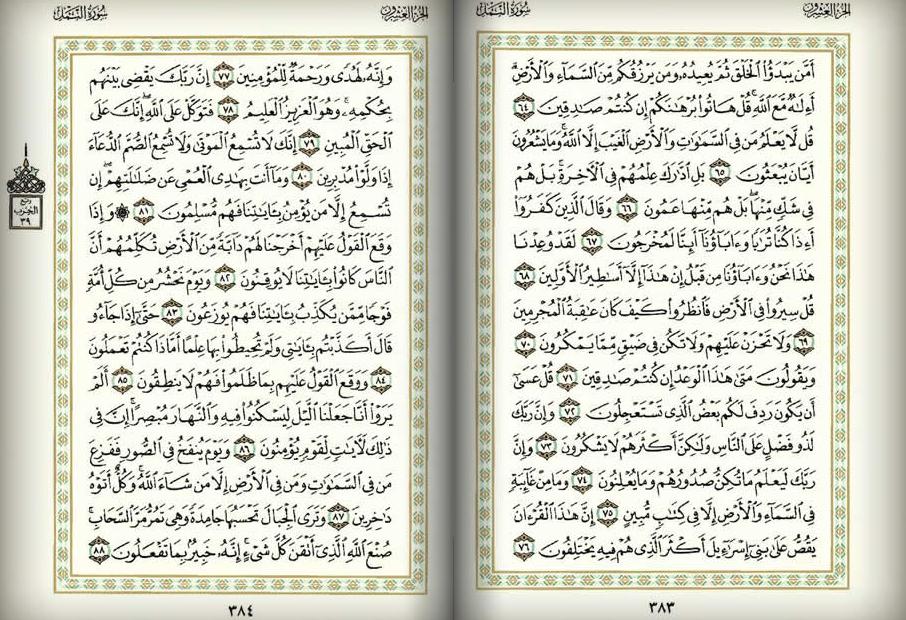 الجزء العشرون
سورة النمل
أَمَّن يَبْدَؤُا۟ الْخَلْقَ ثُمَّ يُعِيدُهُ وَمَن يَرْزُقُكُم مِّنَ السَّمَاءِ وَالْأَرْضِ
أَءِلَٰهٌ مَّعَ اللَّهِ قُلْ هَاتُوا بُرْهَٰنَكُمْ إِن كُنتُمْ صَٰدِقِينَ ٦٤
قُل لَّا يَعْلَمُ مَن فِي السَّمَٰوَٰتِ وَالْأَرْضِ الْغَيْبَ إِلَّا اللَّهُ وَمَا يَشْعُرُونَ
أَيَّانَ يُبْعَثُونَ ٦٥ بَلِ ادَّٰرَكَ عِلْمُهُمْ فِي الْءَاخِرَةِ بَلْ هُمْ
فِي شَكٍّ مِّنْهَا بَلْ هُم مِّنْهَا عَمُونَ ٦٦ وَقَالَ الَّذِينَ كَفَرُوا
أَءِذَا كُنَّا تُرَٰبًا وَءَابَاؤُنَا أَئِنَّا لَمُخْرَجُونَ ٦٧ لَقَدْ وُعِدْنَا
هَٰذَا نَحْنُ وَءَابَاؤُنَا مِن قَبْلُ إِنْ هَٰذَا إِلَّا أَسَٰطِيرُ الْأَوَّلِينَ ٦٨
قُلْ سِيرُوا فِي الْأَرْضِ فَانظُرُوا كَيْفَ كَانَ عَٰقِبَةُ الْمُجْرِمِينَ
٦٩ وَلَا تَحْزَنْ عَلَيْهِمْ وَلَا تَكُن فِي ضَيْقٍ مِّمَّا يَمْكُرُونَ ٧٠
وَيَقُولُونَ مَتَىٰ هَٰذَا الْوَعْدُ إِن كُنتُمْ صَٰدِقِينَ ٧١ قُلْ عَسَىٰ
أَن يَكُونَ رَدِفَ لَكُم بَعْضُ الَّذِي تَسْتَعْجِلُونَ ٧٢ وَإِنَّ رَبَّكَ
لَذُو فَضْلٍ عَلَى النَّاسِ وَلَٰكِنَّ أَكْثَرَهُمْ لَا يَشْكُرُونَ ٧٣ وَإِنَّ
رَبَّكَ لَيَعْلَمُ مَا تُكِنُّ صُدُورُهُمْ وَمَا يُعْلِنُونَ ٧٤ وَمَا مِنْ غَائِبَةٍ
فِي السَّمَاءِ وَالْأَرْضِ إِلَّا فِي كِتَٰبٍ مُّبِينٍ ٧٥ إِنَّ هَٰذَا الْقُرْءَانَ
يَقُصُّ عَلَىٰ بَنِي إِسْرَٰءِيلَ أَكْثَرَ الَّذِي هُمْ فِيهِ يَخْتَلِفُونَ ٧٦
٣٨٣
الجزء العشرون
سورة النمل
وَإِنَّهُ لَهُدًى وَرَحْمَةٌ لِّلْمُؤْمِنِينَ ٧٧ إِنَّ رَبَّكَ يَقْضِي بَيْنَهُم
بِحُكْمِهِ وَهُوَ الْعَزِيزُ الْعَلِيمُ ٧٨ فَتَوَكَّلْ عَلَى اللَّهِ إِنَّكَ عَلَى
الْحَقِّ الْمُبِينِ ٧٩ إِنَّكَ لَا تُسْمِعُ الْمَوْتَىٰ وَلَا تُسْمِعُ الصُّمَّ الدُّعَاءَ
إِذَا وَلَّوْا مُدْبِرِينَ ٨٠ وَمَا أَنتَ بِهَٰدِي الْعُمْيِ عَن ضَلَٰلَتِهِمْ إِن
تُسْمِعُ إِلَّا مَن يُؤْمِنُ بِـَٔايَٰتِنَا فَهُم مُّسْلِمُونَ ٨١ ۞ وَإِذَا
وَقَعَ الْقَوْلُ عَلَيْهِمْ أَخْرَجْنَا لَهُمْ دَابَّةً مِّنَ الْأَرْضِ تُكَلِّمُهُمْ أَنَّ
النَّاسَ كَانُوا بِـَٔايَٰتِنَا لَا يُوقِنُونَ ٨٢ وَيَوْمَ نَحْشُرُ مِن كُلِّ أُمَّةٍ
فَوْجًا مِّمَّن يُكَذِّبُ بِـَٔايَٰتِنَا فَهُمْ يُوزَعُونَ ٨٣ حَتَّىٰ إِذَا جَاءُو
قَالَ أَكَذَّبْتُم بِـَٔايَٰتِي وَلَمْ تُحِيطُوا بِهَا عِلْمًا أَمَّاذَا كُنتُمْ تَعْمَلُونَ
٨٤ وَوَقَعَ الْقَوْلُ عَلَيْهِم بِمَا ظَلَمُوا فَهُمْ لَا يَنطِقُونَ ٨٥ أَلَمْ
يَرَوْا أَنَّا جَعَلْنَا الَّيْلَ لِيَسْكُنُوا فِيهِ وَالنَّهَارَ مُبْصِرًا إِنَّ فِي
ذَٰلِكَ لَءَايَٰتٍ لِّقَوْمٍ يُؤْمِنُونَ ٨٦ وَيَوْمَ يُنفَخُ فِي الصُّورِ فَفَزِعَ
مَن فِي السَّمَٰوَٰتِ وَمَن فِي الْأَرْضِ إِلَّا مَن شَاءَ اللَّهُ وَكُلٌّ أَتَوْهُ
دَٰخِرِينَ ٨٧ وَتَرَى الْجِبَالَ تَحْسَبُهَا جَامِدَةً وَهِيَ تَمُرُّ مَرَّ السَّحَابِ
صُنْعَ اللَّهِ الَّذِي أَتْقَنَ كُلَّ شَيْءٍ إِنَّهُ خَبِيرٌ بِمَا تَفْعَلُونَ ٨٨
ربع
الحزب
٣٩
٣٨٤